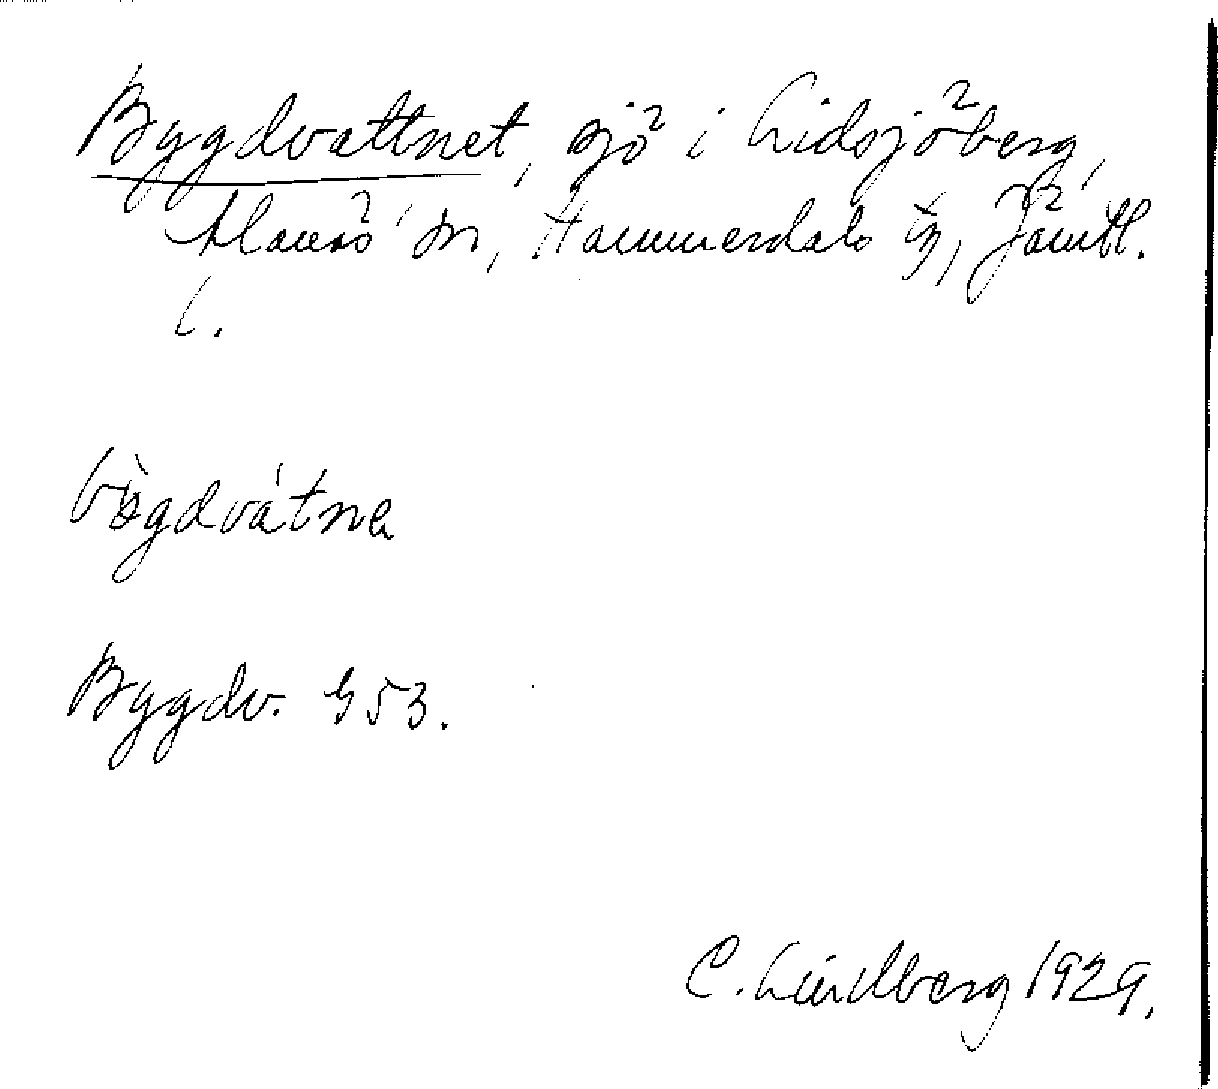 Bygdvattnet, sjö i Lidsjöberg,
Alanäs sn, Hammerdals tg, Jämtl.
l.
bögdvátne
Bygdv. G53.
C. Lindberg 1929.